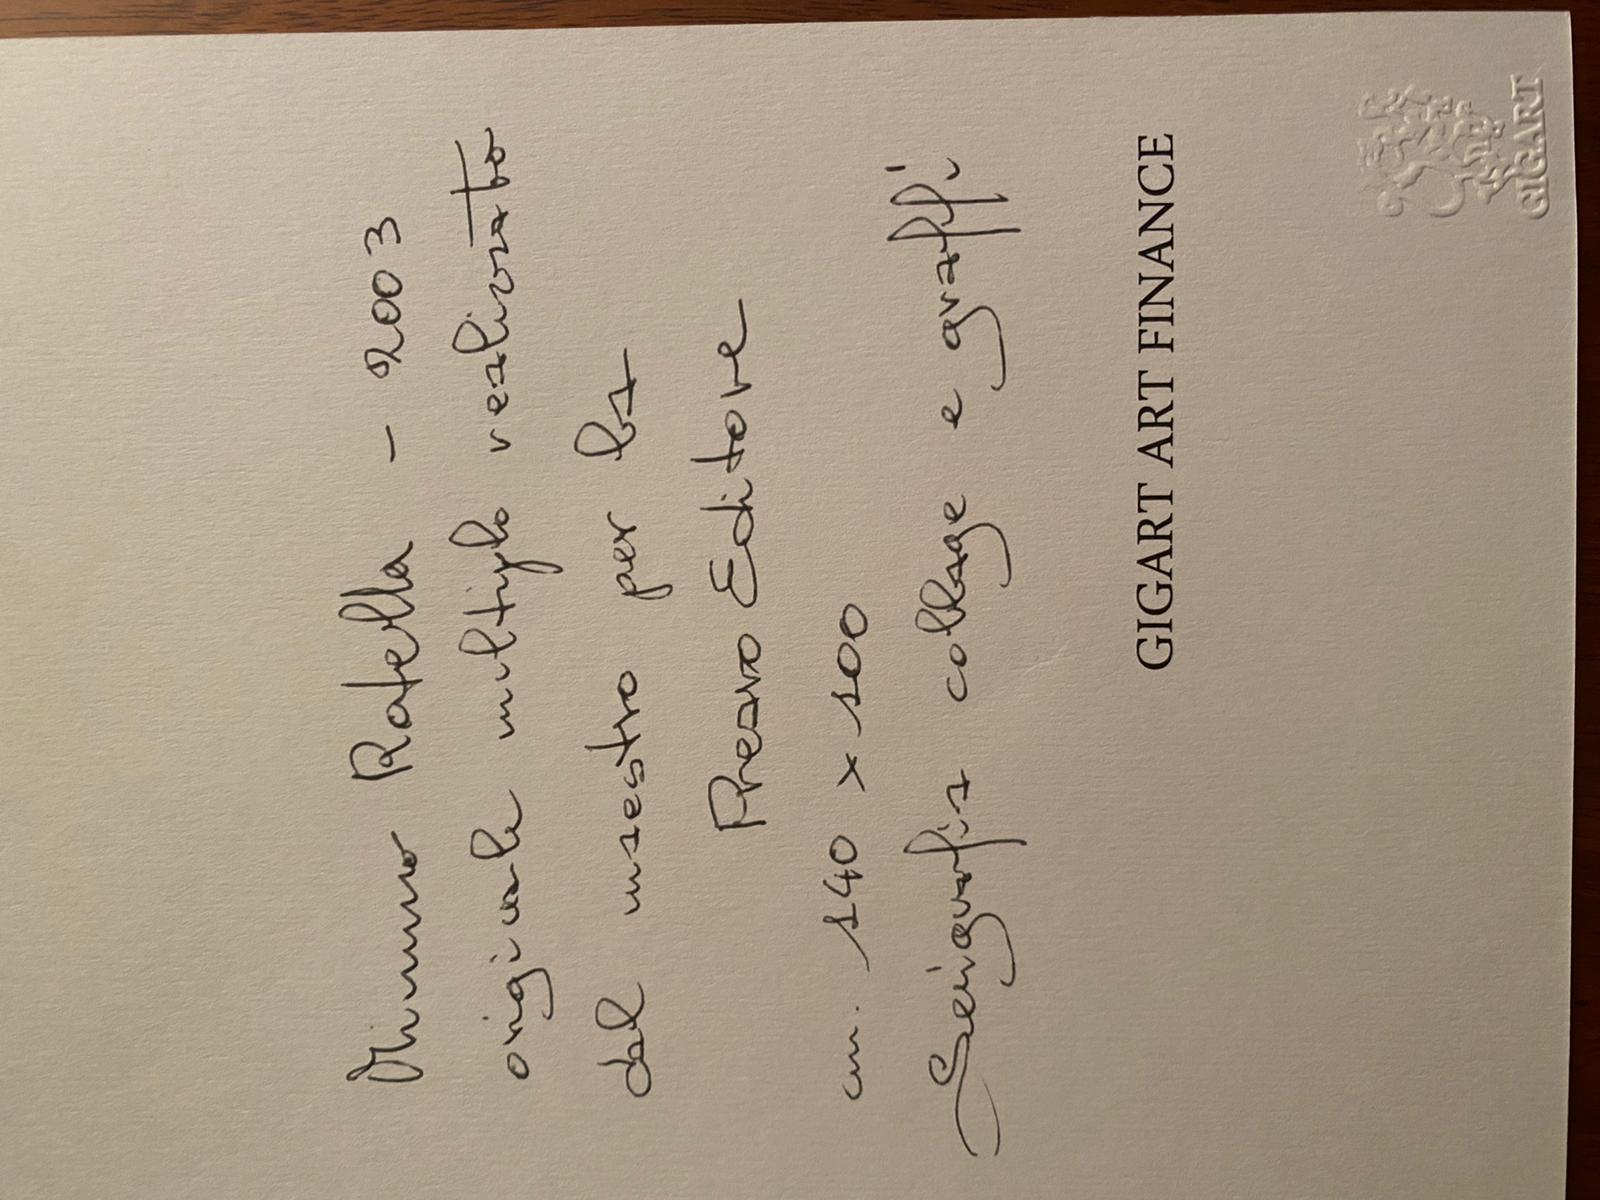 Mimmo Rotella - 2003
originale multiplo realizzato
dal maestro per la
Prearo Editore
cm. 140 x 100
Serigrafia collage e graffi
GIGART ART FINANCE
GIGART